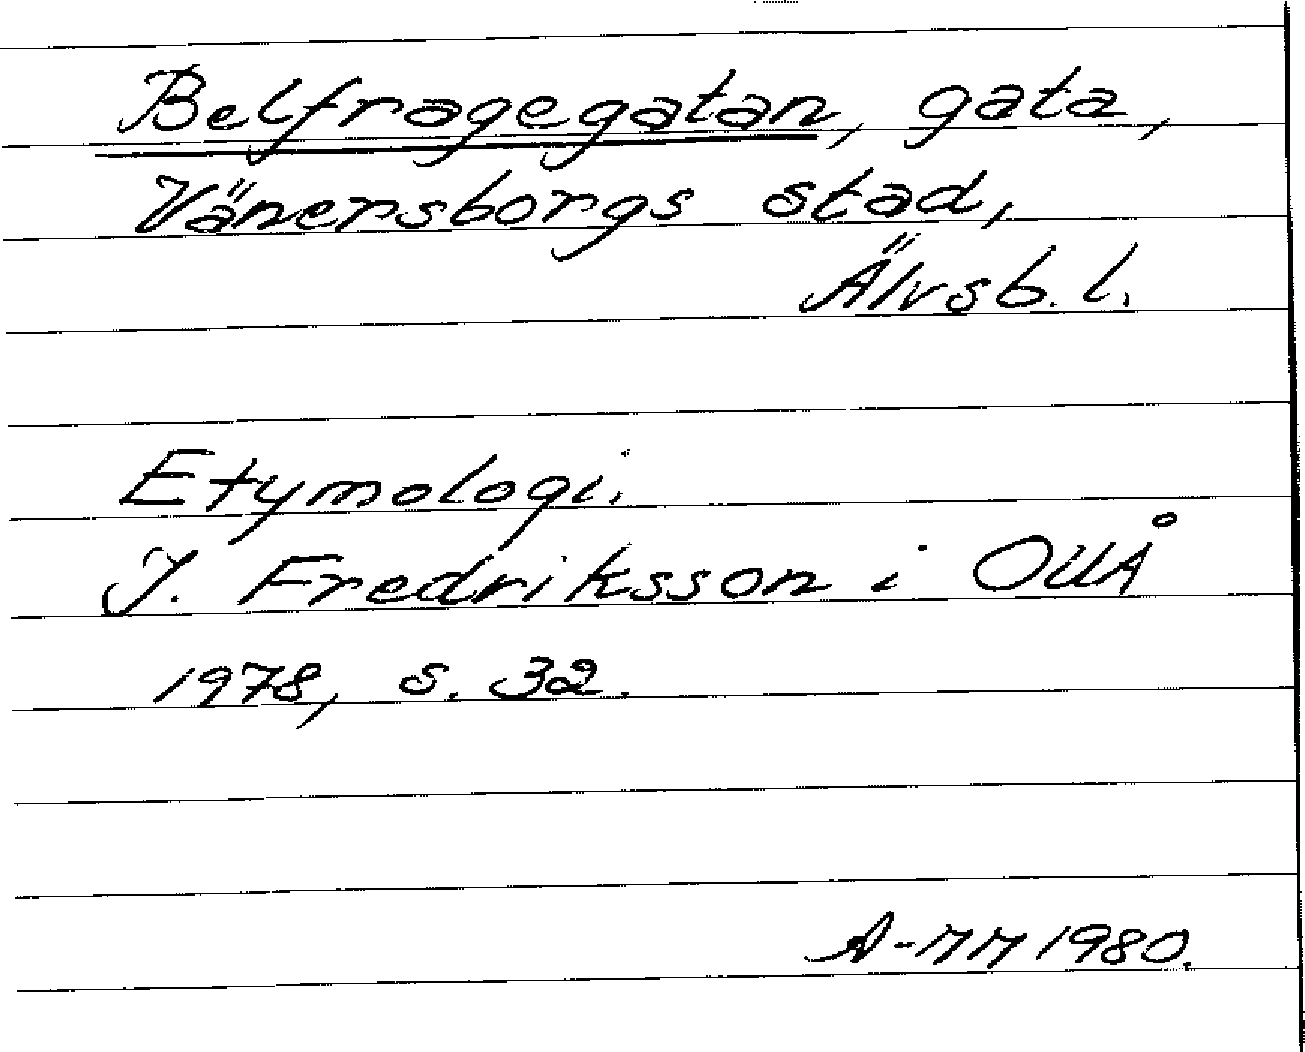 Belfragegatan, gata,
Vänersborgs stad,
Älvsb. l.
Etymologi.
J. Fredriksson i OUÅ
1978, s. 32.
A-MM 1980.